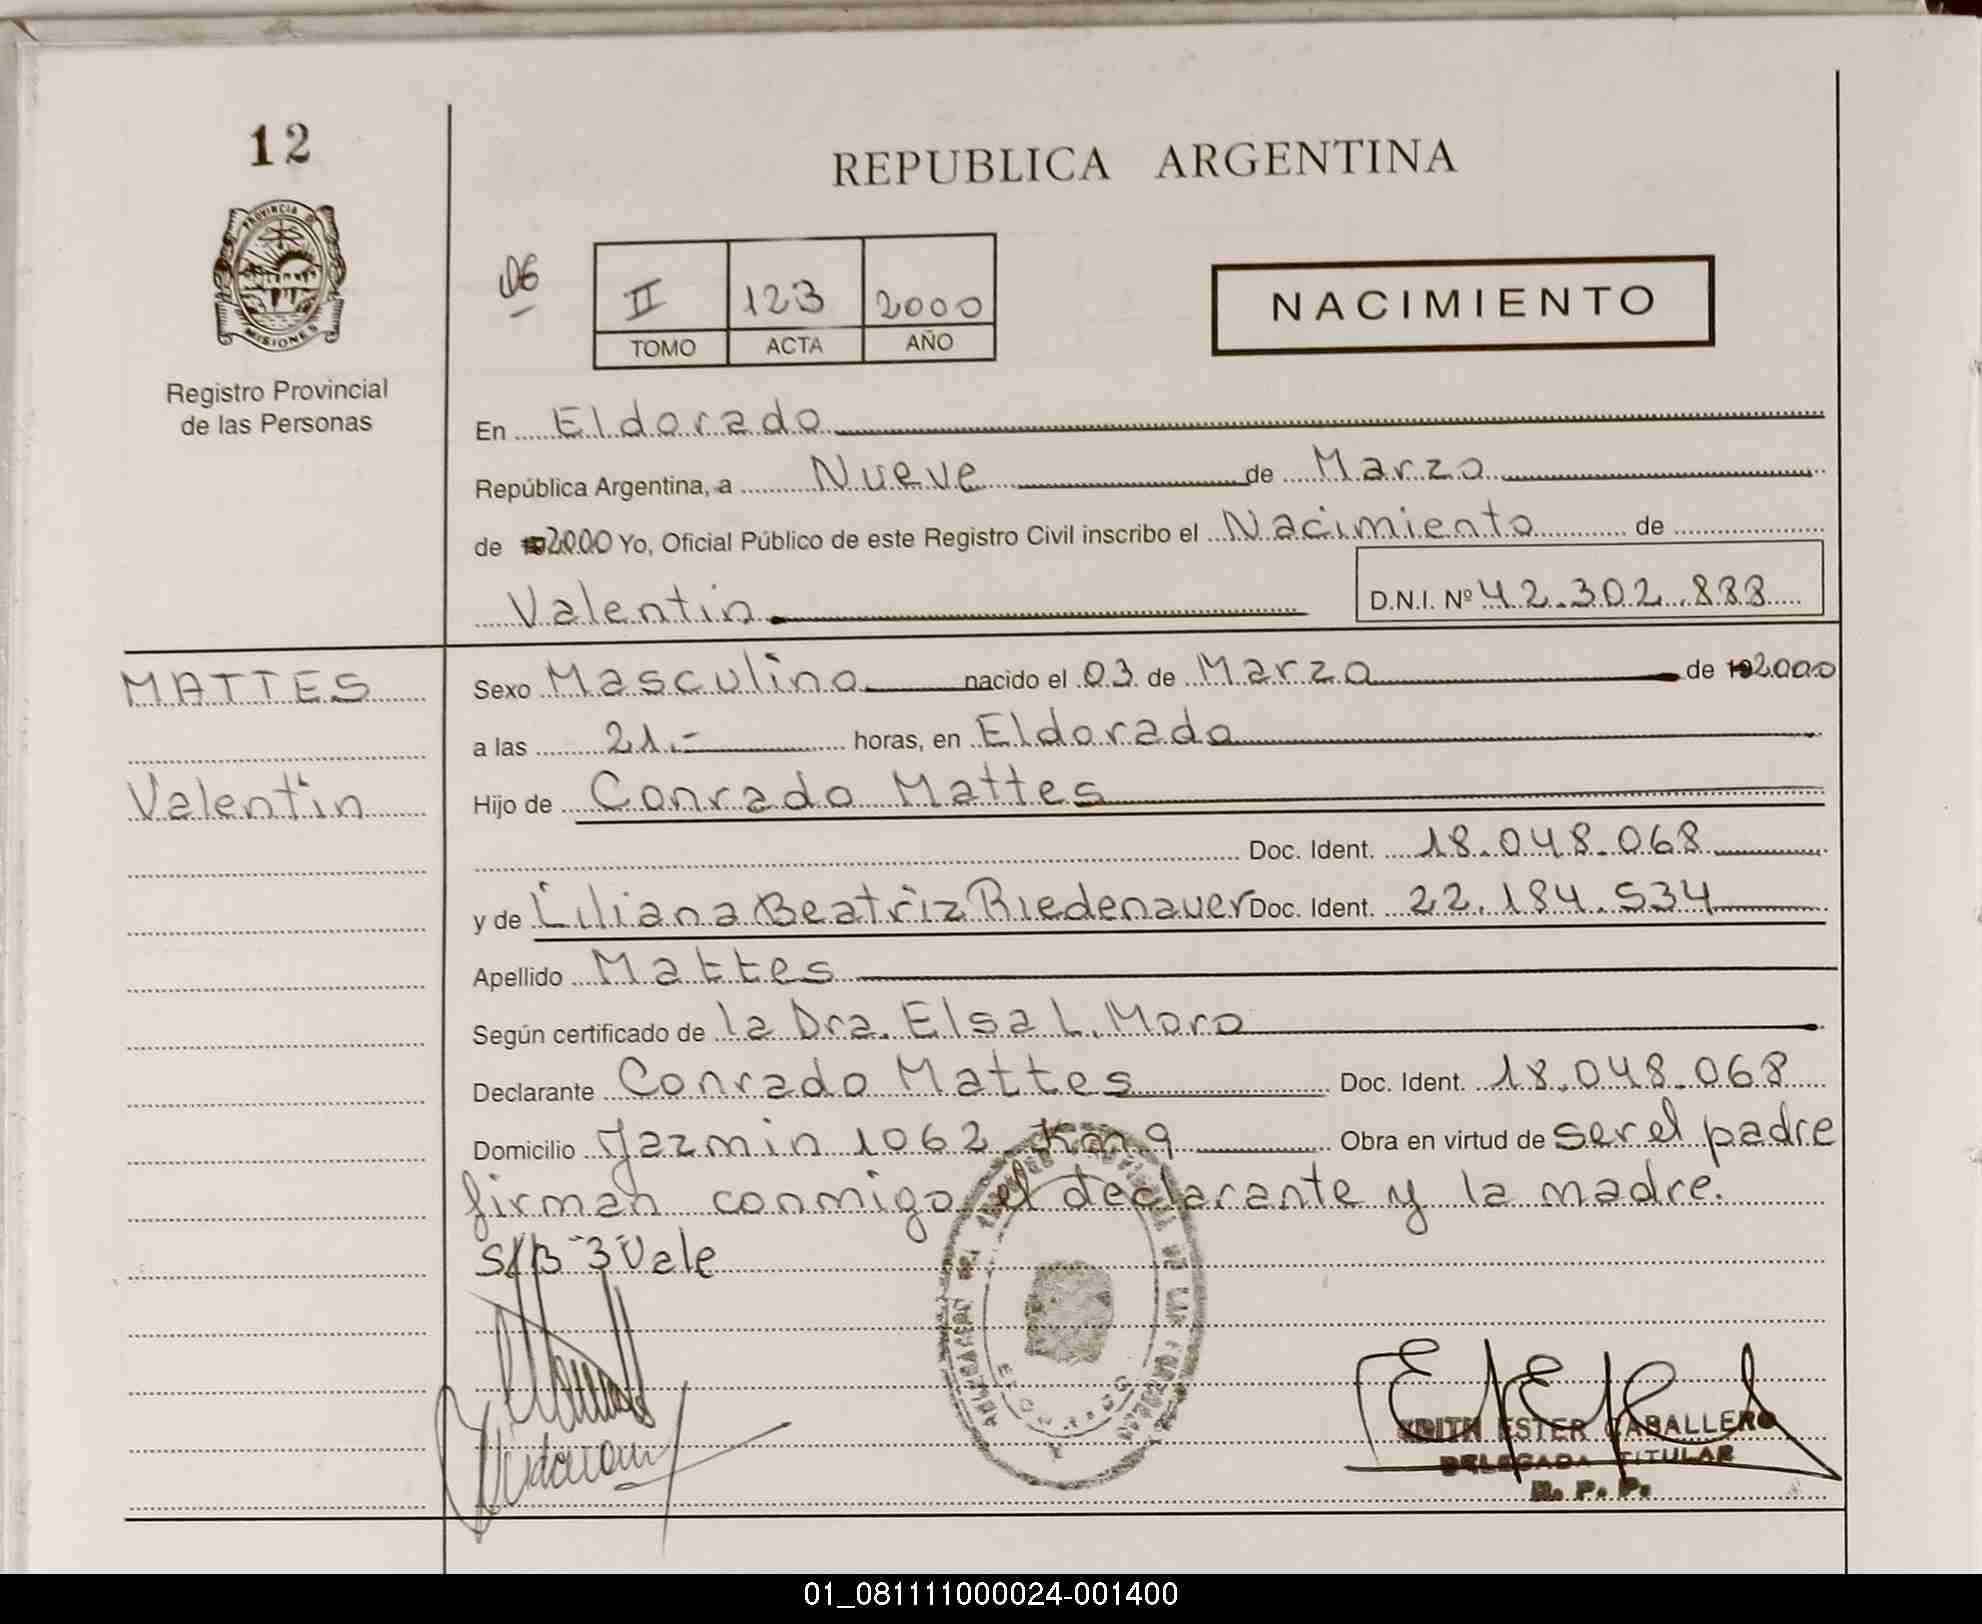 12
REPUBLICA ARGENTINA
PROVINCIA DE
MISIONES
Registro Provincial
de las Personas
06
II 123 2000
TOMO ACTA AÑO
NACIMIENTO
En Eldorado
República Argentina, a Nueve de Marzo
de 192000 Yo, Oficial Público de este Registro Civil inscribo el Nacimiento de
Valentin D.N.I. Nº 42.302.888
MATTES
Valentin
Sexo Masculino nacido el 03 de Marzo de 192000
a las 21.- horas, en Eldorado
Hijo de Conrado Mattes
Doc. Ident. 18.048.068
y de Liliana Beatriz Riedenauer Doc. Ident. 22.184.534
Apellido Mattes
Según certificado de la Dra. Elsa L. Moro
Declarante Conrado Mattes Doc. Ident. 18.048.068
Domicilio Jazmin 1062 Km 9 Obra en virtud de ser el padre
firman conmigo el declarante y la madre.
S/B "3" Vale
EDITH ESTER CABALLERO
DELEGADA TITULAR
R. P. P.
01_081111000024-001400